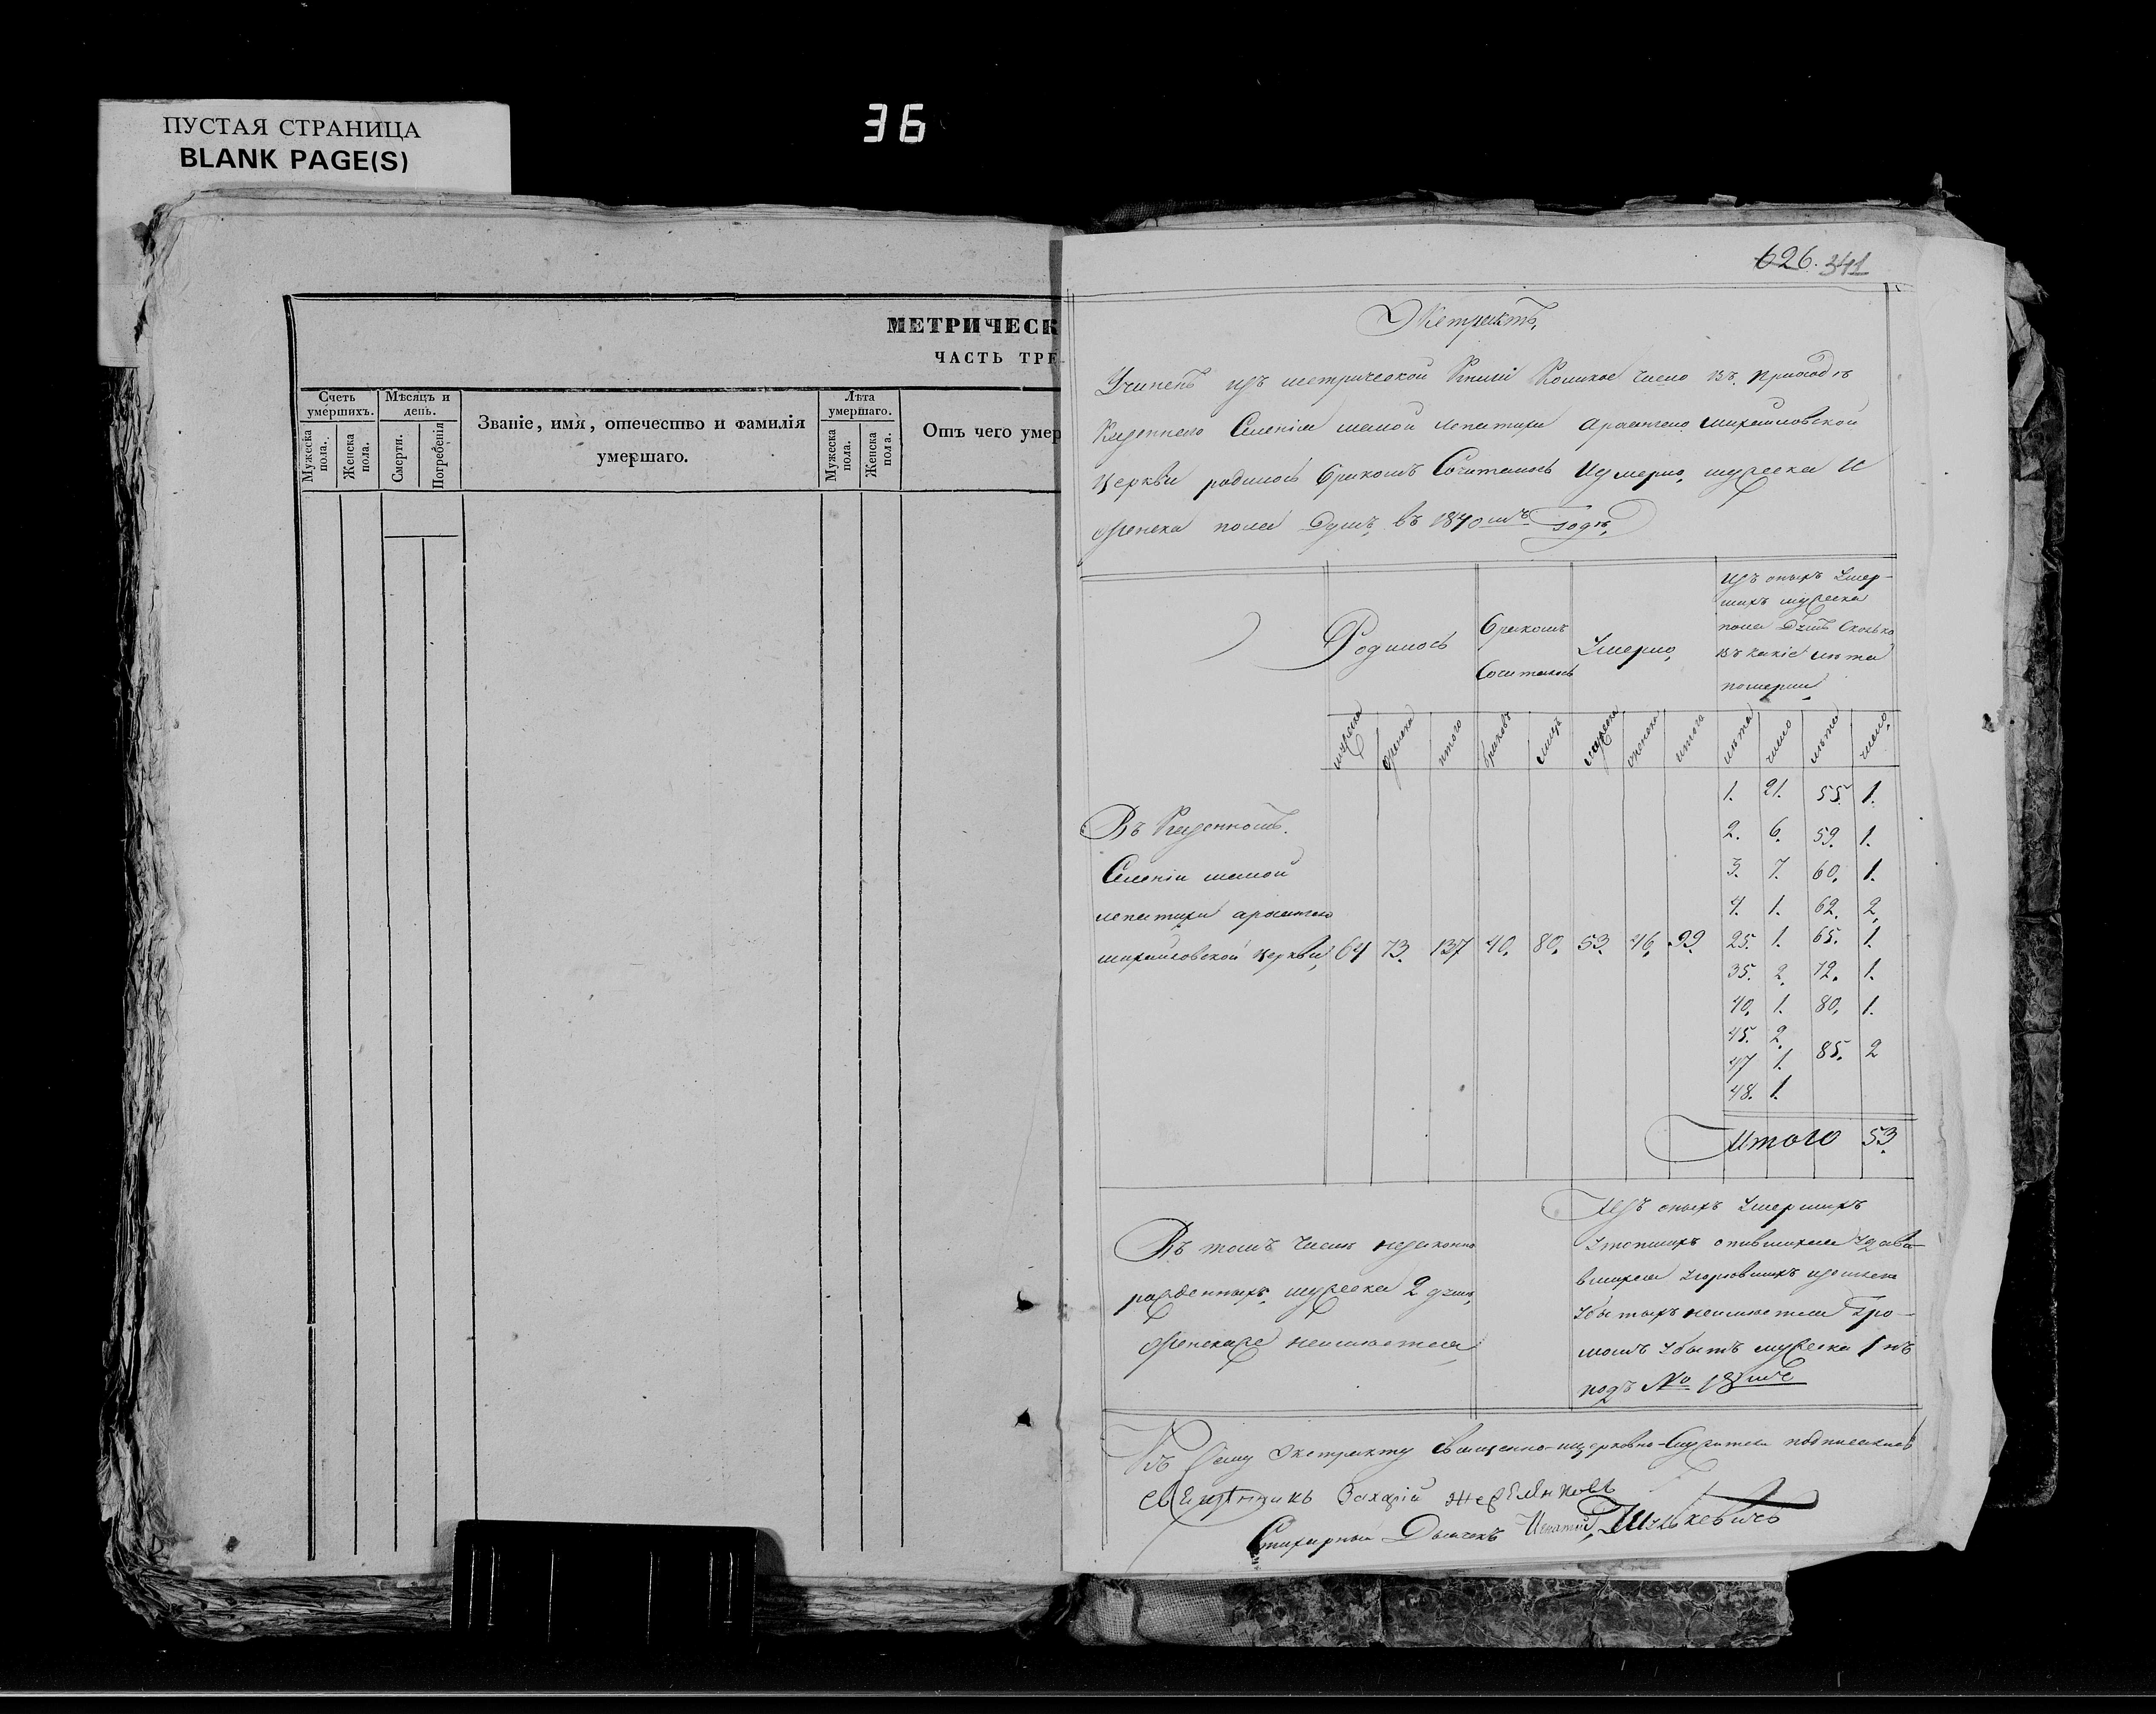 ПУСТАЯ СТРАНИЦА
BLANK PAGE(S)
36
МЕТРИЧЕСК
ЧАСТЬ ТРЕ
Счетъ умершихъ.
Мужеска пола.
Женска пола.
Мѣсяцъ и день.
Смерти.
Погребенія
Званіе, имя, отечество и фамилія
умершаго.
Лѣта умершаго.
Мужеска пола.
Женска пола.
Отъ чего умер
626. 341
Экстрактъ,
Учиненъ изъ метрической Книги Коликое число въ приходѣ
Казеннаго Селенія малой лепатихи архангело михайловской
церкви родилось бракомъ Сочиталось Иумерло, мужеска И
женска пола Душъ, въ 1840мъ годѣ,
Родилось
бракомъ
Сочиталось
Умерло,
изъ оныхъ Умер-
шихъ мужеска
пола Душъ Сколько
въ какіе лѣта
померли
мужеска
женска
итого
браковъ
лицъ
мужеска
женска
итого
лѣта
число
лѣта
число,
1. 21. 55. 1.
2. 6. 59. 1.
3. 7. 60. 1.
4. 1. 62. 2,
Въ Казенномъ.
Селеніи малой
лепатихи архангело
михайловской церкви, 64 73. 137 40. 80. 53. 46, 99. 25. 1. 65. 1.
35. 2, 72. 1.
40, 1. 80, 1.
45. 2.
47 1. 85. 2
48. 1.
Итого 53.
Въ томъ числѣ незаконно
рожденныхъ, мужеска 2 душ,
женскаже неимѣется
Изъ оныхъ Умершихъ
Утопшихъ опившихся Удави-
вшихся
Убытыхъ неимѣется Гро-
момъ Убытъ мужеска 1 нъ
подъ № 18мъ
Къ Сему Экстракту Священно-ицерковно-Служители подписались
Священникъ Захарій
Стихарный Дьячекъ Игнатій, Шулькевичъ